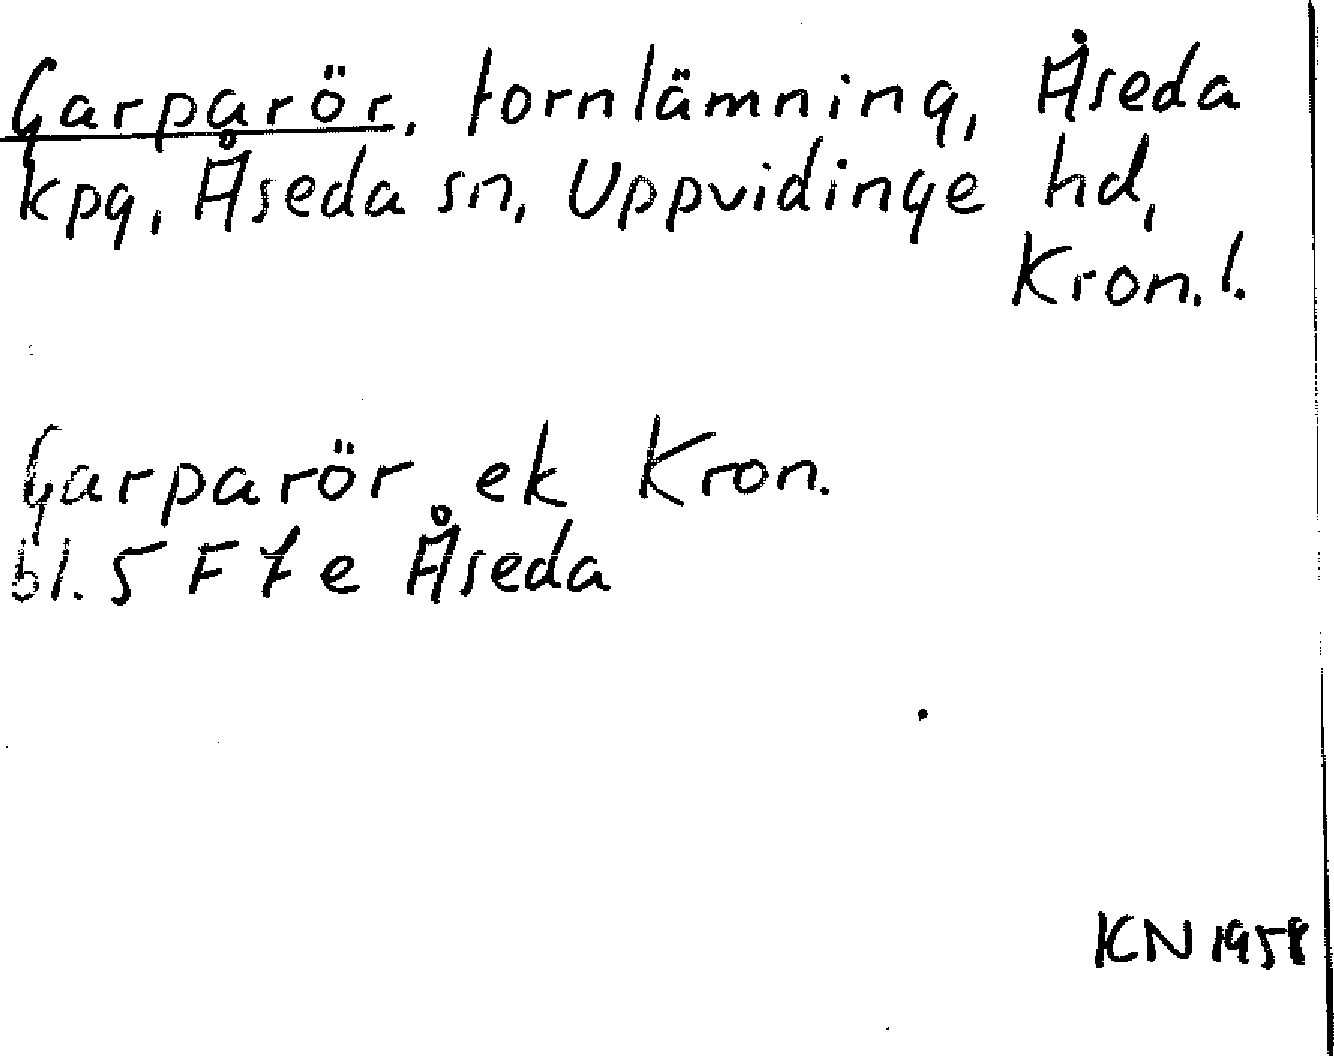 Garparör, fornlämning, Åseda
kpg, Åseda sn, Uppvidinge hd,
Kron.l.
Garparör ek Kron.
bl. 5 F 7 e Åseda
KN 1958